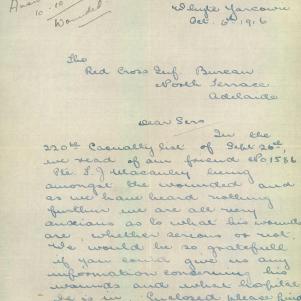 10-10
Wounded
Whyte Yarcowie
Oct. 6th 1916
The
Red Cross Inf Bureau
North Terrace
Adelaide
Dear Sirs
In the
220th Casualty list of Sept 26th,
we read of our friend No 1586
Pte. L. J. Macauley being
amongst the wounded and
as we have heard nothing
further we are all very
anxious as to what his wounds
are, whether serious or not.
We would be so gratefull
if you could give us any
information concerning his
wounds and what hospital
he is in. Enclosed please find